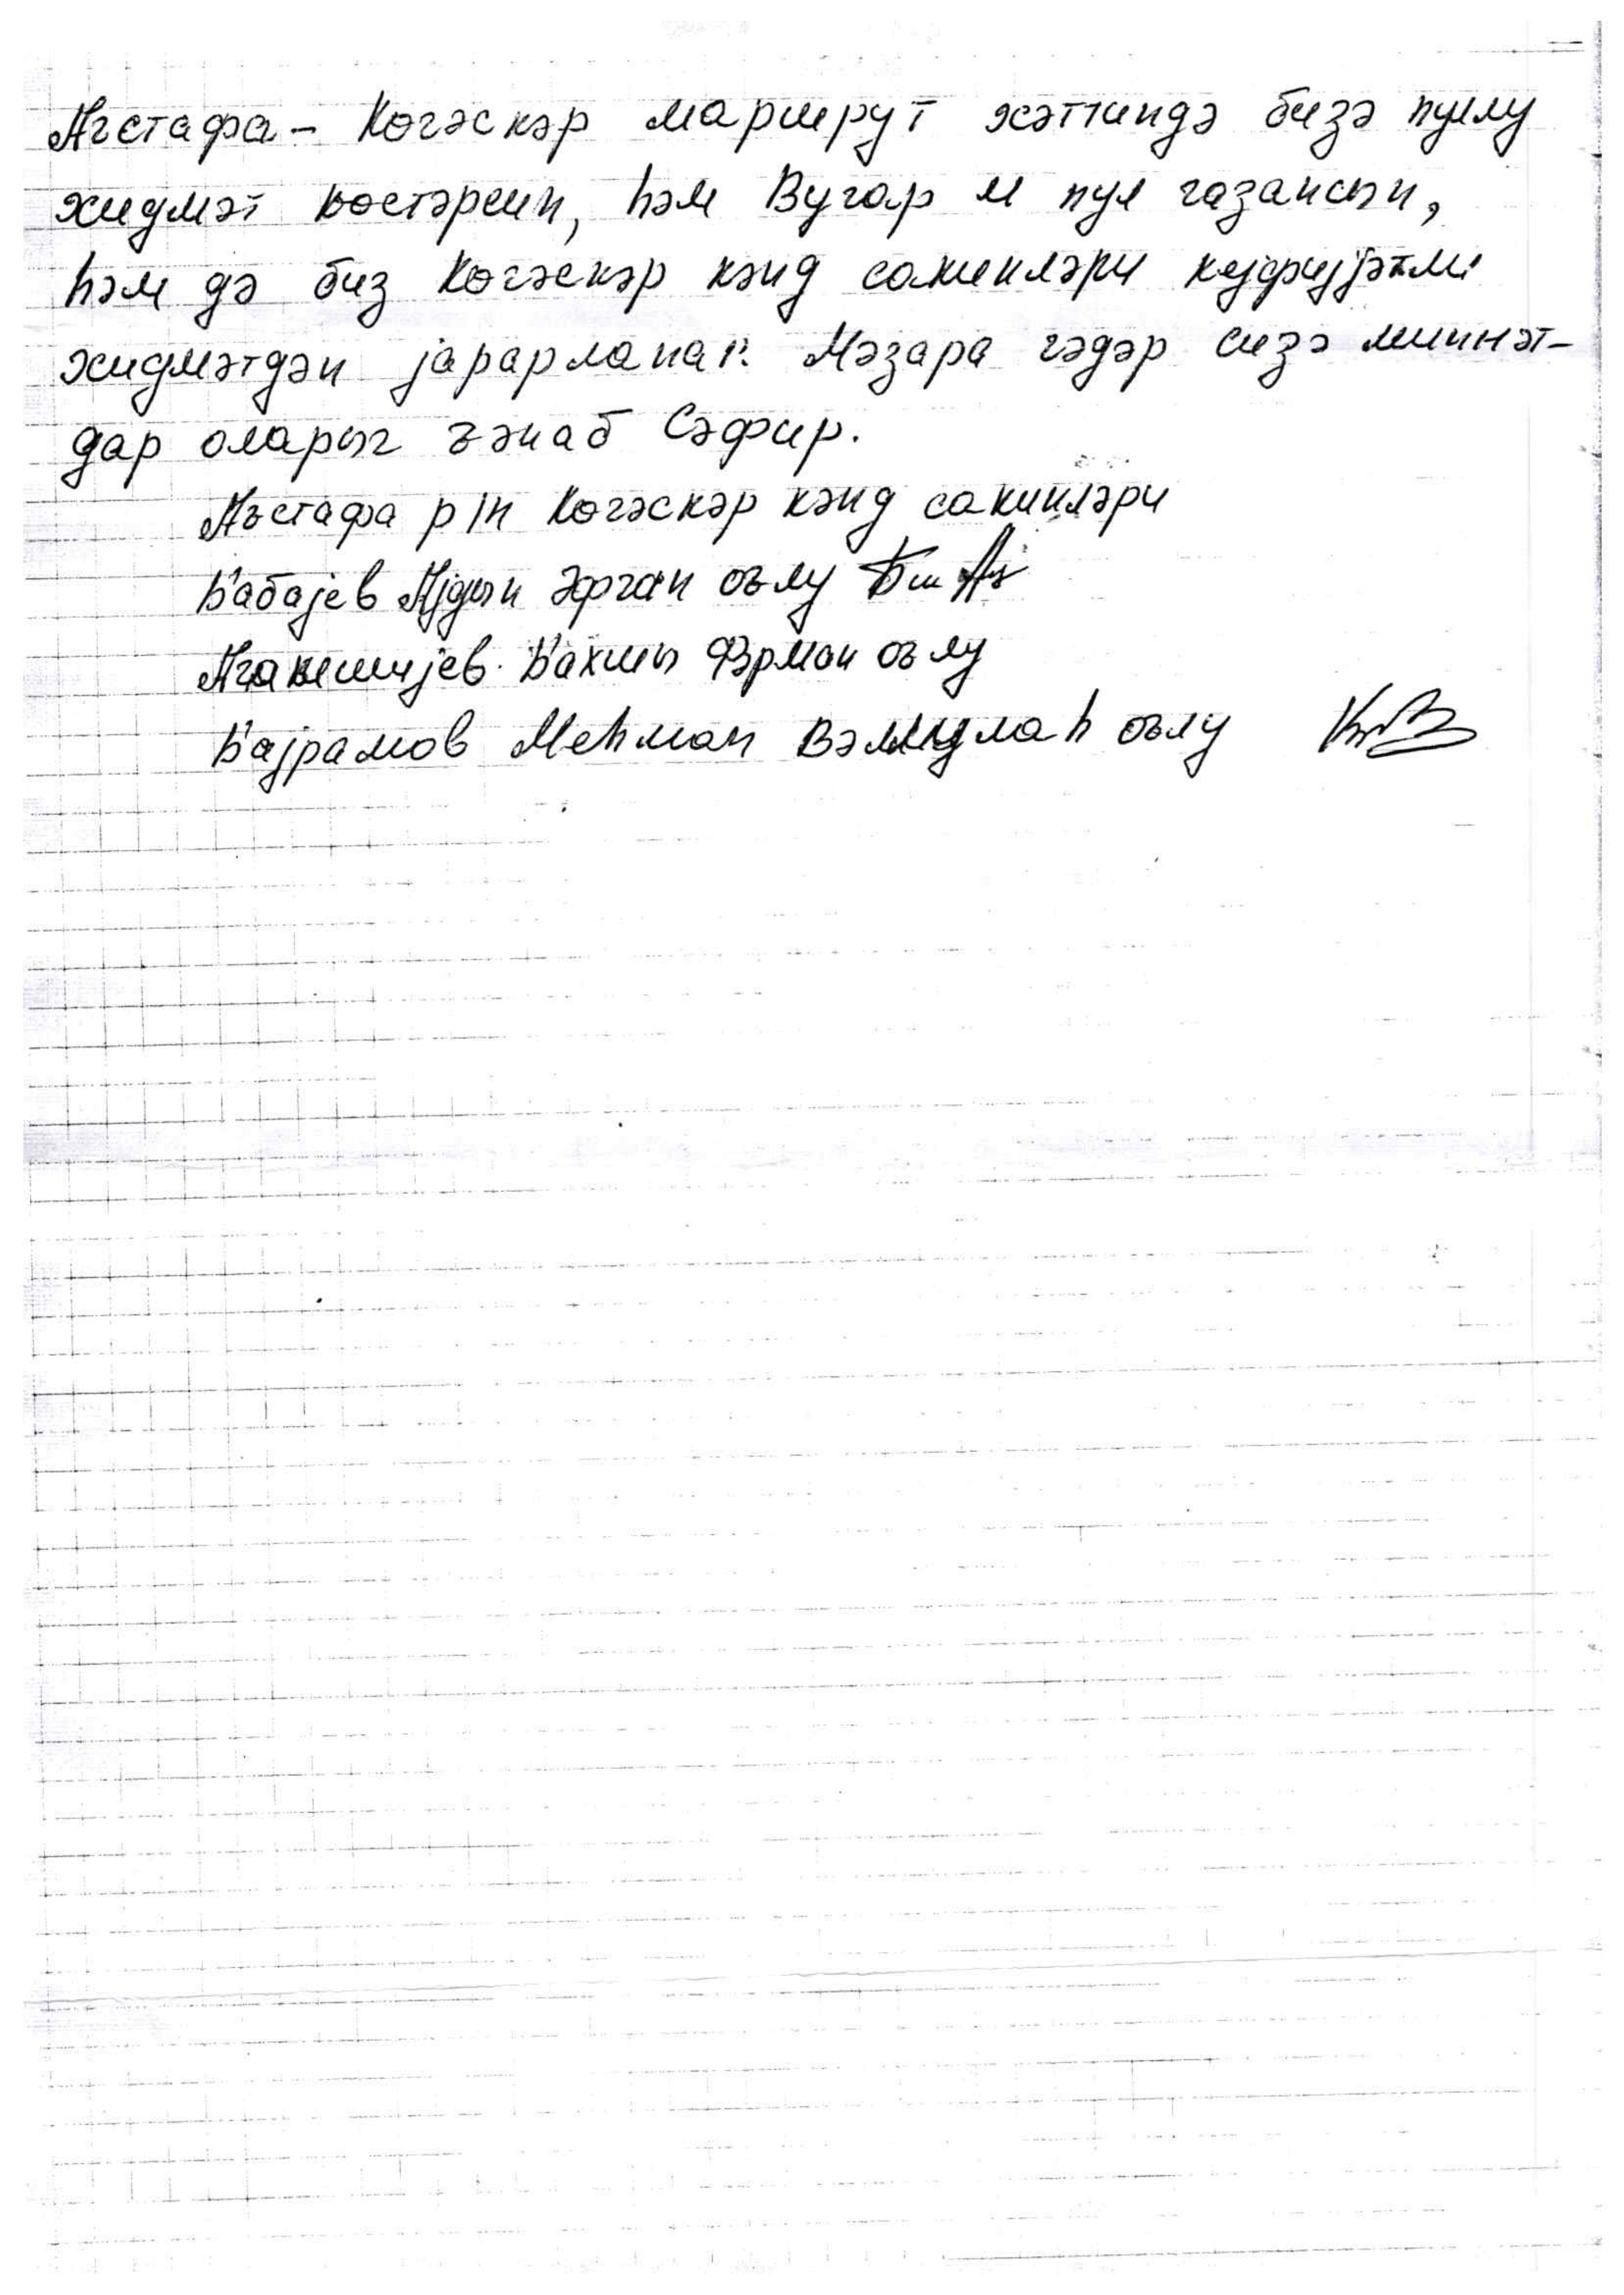 Агстафа - Көгәскәр маршрут хәттиндә бизә пуллу
хидмәт көстәрсин, һәм Вугар м пул газансын,
һәм дә биз Көгәскәр кәнд сакинләри кејфијјәтли
хидмәтдән јарарланаг. Мәзара гәдәр сизә миннәт-
дар оларыг ҹәнаб Сәфир.
Аъстафа р/н Көгәскәр кәнд сакинләри
Бабајев Ајдын оълу
Бахшы Фәрман оълу
Бајрамов Меһман Вәлиулаһ оълу